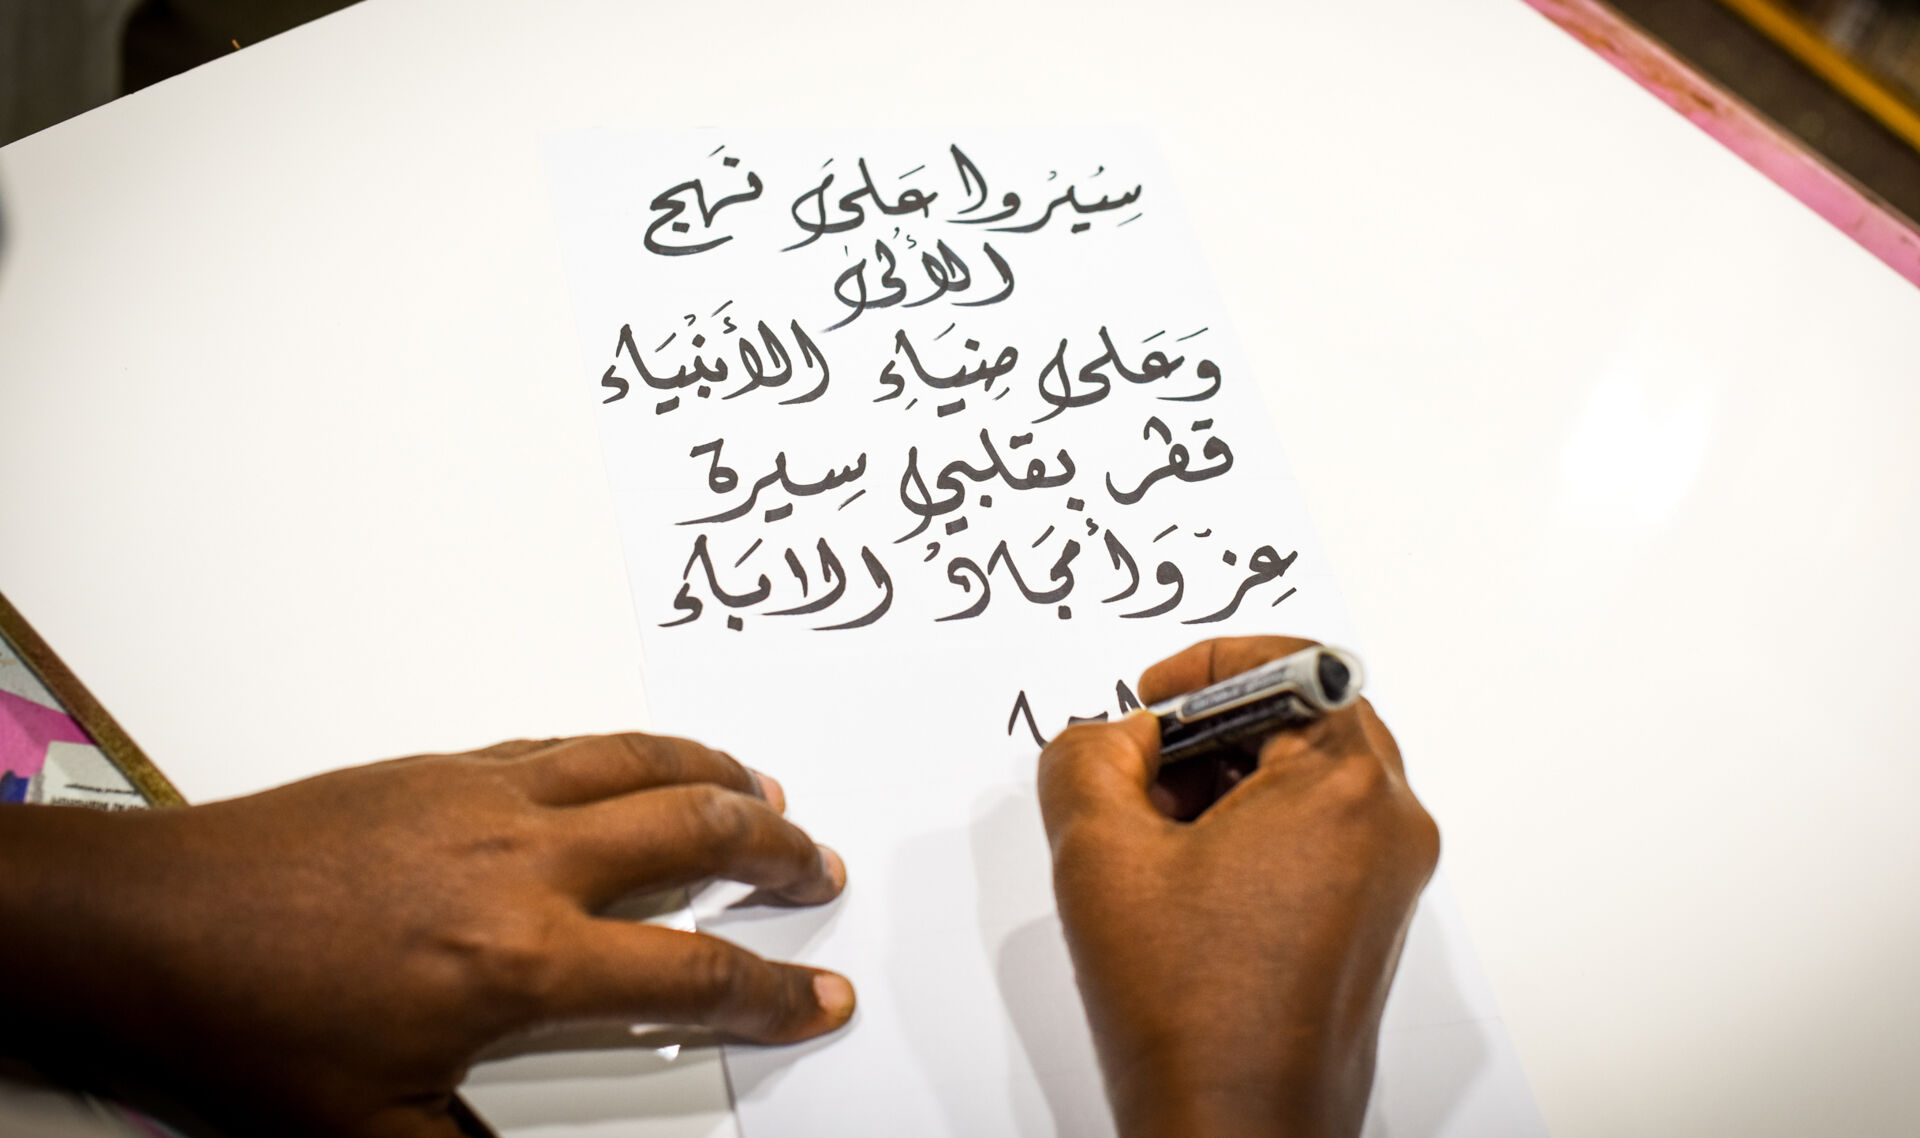 سِيُرْوا عَلىَ نَهج
الأُلىٰ
وَعَلى ضِيَاءِ الأَنْبيَاء
قطر بقلبي سيرة
عِزّ وَأمجَادُ الابَاء